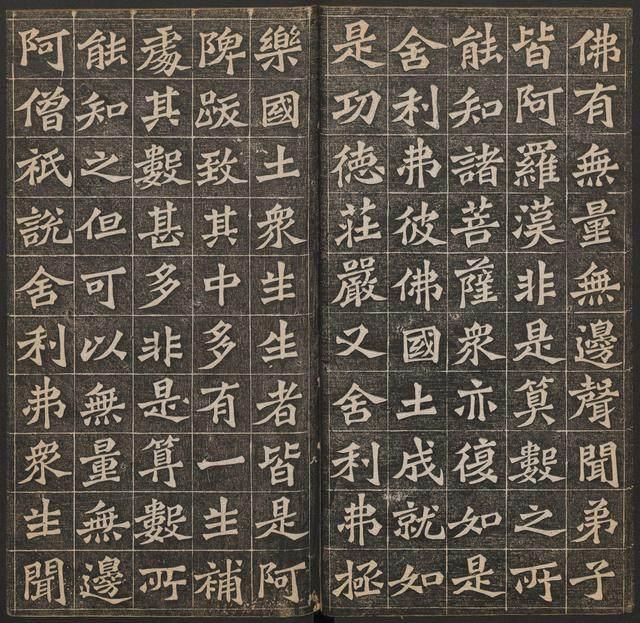 佛有無量無邊聲聞弟子
皆阿羅漢非是筭數之所
能知諸菩薩衆亦復如是
舍利弗彼佛國土成就如
是功德莊嚴又舍利弗極
樂國土衆生生者皆是阿
陴跋致其中多有一生補
處其數甚多非是筭數所
能知之但可以無量無邊
阿僧祇說舍利弗衆生聞